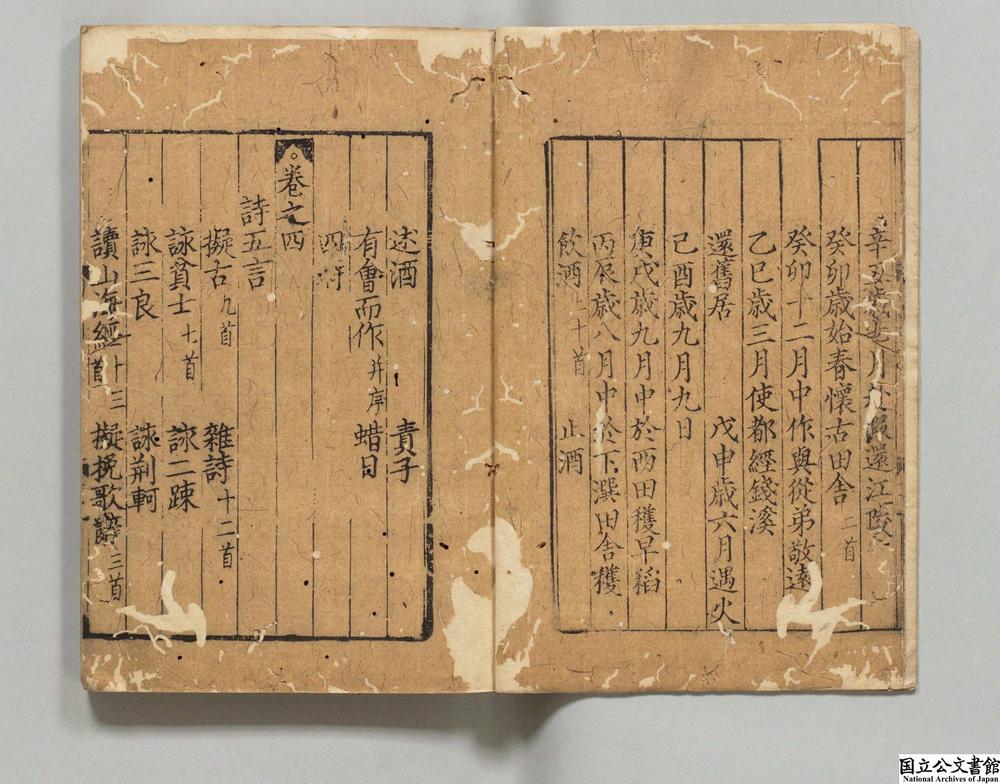 辛丑歲七月赴假還江陵
癸卯歲始春懷古田舍 二首
癸卯十二月中作與從弟敬遠
乙巳歲三月使都經錢溪
還舊居 戊申歲六月遇火
己酉歲九月九日
庚戌歲九月中於西田穫早稻
丙辰歲八月中於下潠田舍穫
飲酒 二十首 止酒
述酒 責子
有會而作 并序 蜡日
四時
卷之四
詩五言
擬古 九首 雜詩 十二首
詠貧士 七首 詠二踈
詠三良 詠荊軻
讀山海經 十三首 擬挽歌辭 三首
国立公文書館
National Archives of Japan